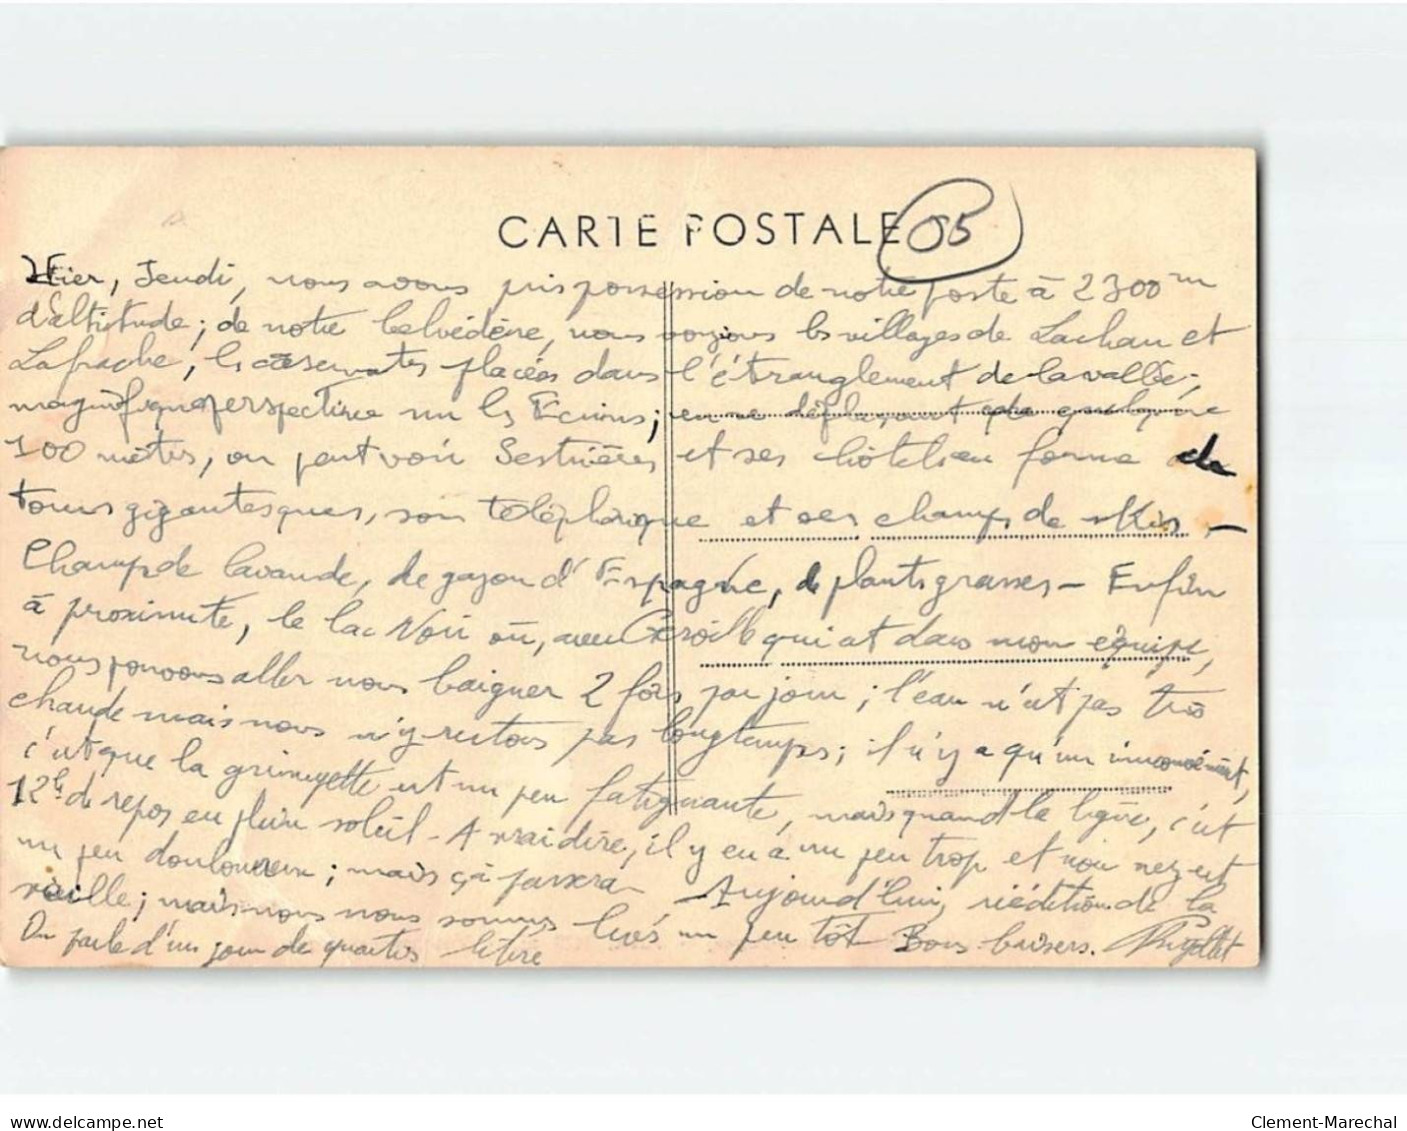 CARTE POSTALE
05
Hier, Jeudi, nous avons pris possession de notre poste à 2300m
d'altitude; de notre belvédère, nous voyions les villages de Lachau et
Lafrache, les casernates placées dans l'étranglement de la vallée;
magnifique perspective sur les Ecrins; en se déplaçant de quelque
100 mètres, on peut voir Sestrières et ses hôtels en forme de
tours gigantesques, son téléphérique et ses champs de skis. —
Champs de lavande, de gazon d'Espagne, de plantes grasses — Enfin
à proximité, le lac Noir où, avec qui est dans mon équipe,
nous pouvons aller nous baigner 2 fois par jour; l'eau n'est pas très
chaude mais nous n'y restons pas longtemps; il n'y a qu'un inconvénient,
c'est que la grimpette est un peu fatigante, mais quand la ligne, c'est
12h de repos en plein soleil — A vrai dire, il y en a un peu trop et mon nez est
un peu douloureux; mais ça passera — Aujourd'hui, réédition de la
veille; mais nous nous sommes levés un peu tôt Bons baisers.
On parle d'un jour de quartier libre